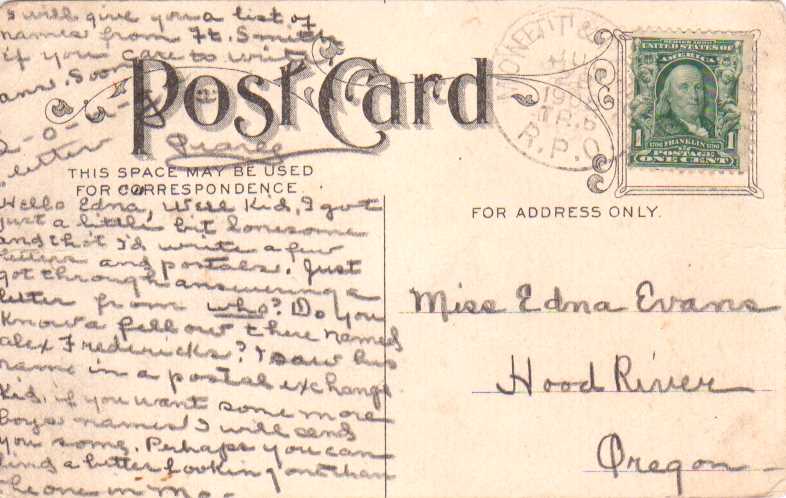 I will give you a list of
names from Ft. Smith
if you care to write
ans. Soon
letter Pearle
Post Card
THIS SPACE MAY BE USED
FOR CORRESPONDENCE.
Hello Edna, Well Kid, I got
just a little bit lonesome
and that I'd write a few
letters and postals. Just
got through answering a
letter from who? Do you
know a fellow out there named
Alex Fredericks? I saw his
name in a postal exchange
Kid, if you want some more
boys names I will send
you some. Perhaps you can
find a better looking one than
the one in Mo.
R.P.O.
SERIES 1902
UNITED STATES OF
AMERICA
1 FRANKLIN 1
POSTAGE
ONE CENT
FOR ADDRESS ONLY.
Miss Edna Evans
Hood River
Oregon